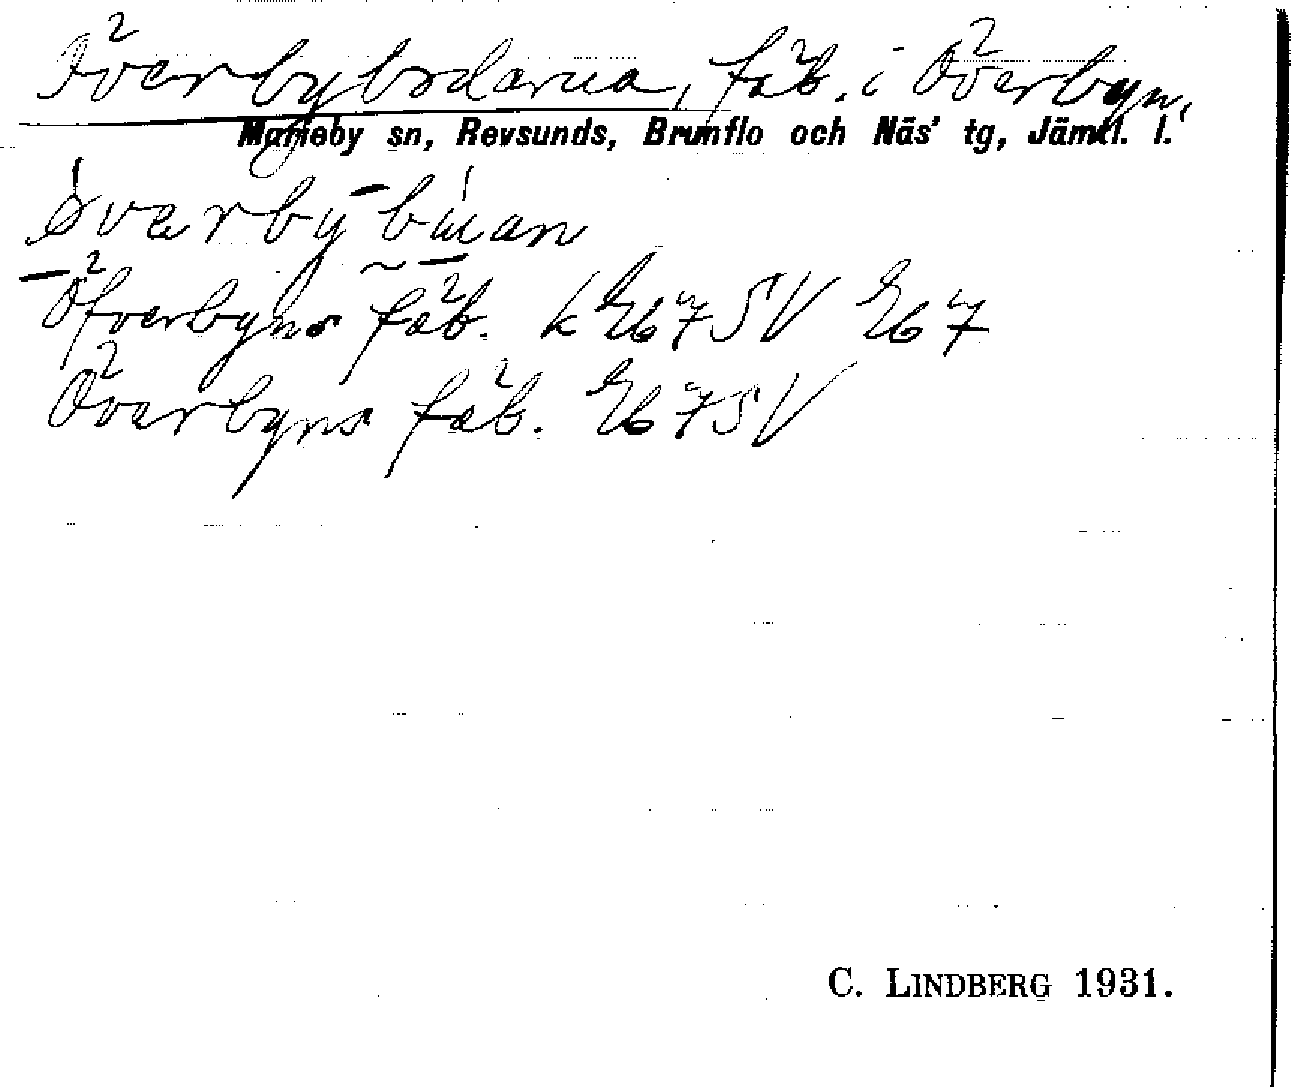 Överbybodarna, fäb. i Överbyn,
Marieby sn, Revsunds, Brunflo och Näs' tg, Jämtl. l.
Öfverbyns fäb. k E675V E67
Överbyns fäb. E675V
C. LINDBERG 1931.